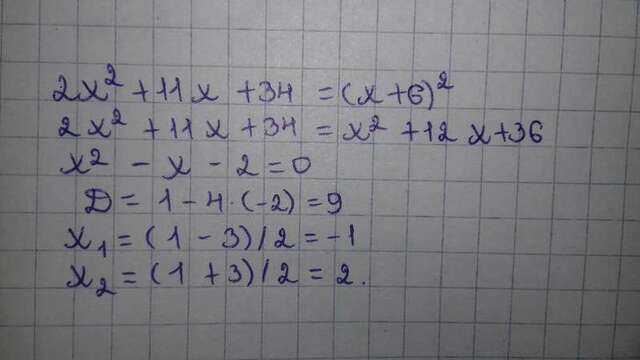 2x² + 11x + 34 = (x+6)²
2x² + 11x + 34 = x² + 12x + 36
x² - x - 2 = 0
D = 1 - 4·(-2) = 9
x₁ = (1 - 3)/2 = -1
x₂ = (1 + 3)/2 = 2.